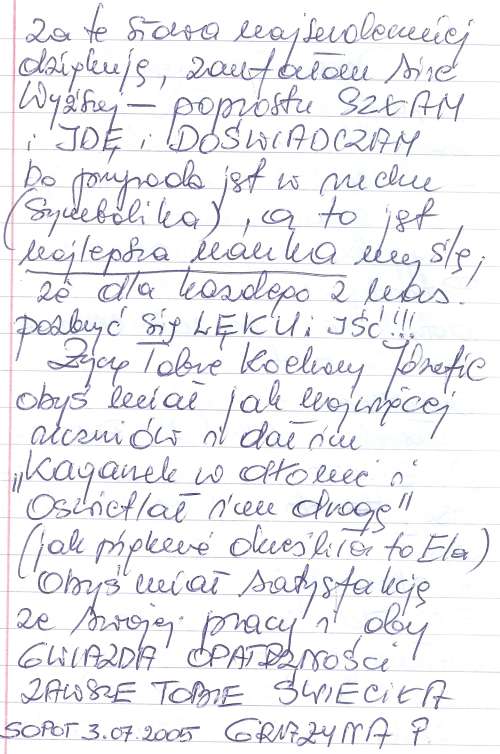 za te słowa najserdeczniej
dziękuję, zaufałam sile
Wyższej — poprostu SZŁAM
i IDĘ i DOŚWIADCZAM
bo przyroda jest w ruchu
(Symbolika), a to jest
najlepsza nauka myślę,
że dla każdego z nas.
pozbyć się LĘKU i IŚĆ!!!
Życzę Tobie Kochany Józefie
obyś miał jak najwięcej
uczniów i dał im
„Kaganek w dłonie i
Oświetlał im drogę"
(jak pięknie określiła to Ela)
Obyś miał satysfakcję
ze swojej pracy i oby
GWIAZDA OPATRZNOŚCI
ZAWSZE TOBIE ŚWIECIŁA
SOPOT 3.07.2005 GRAŻYNA P.